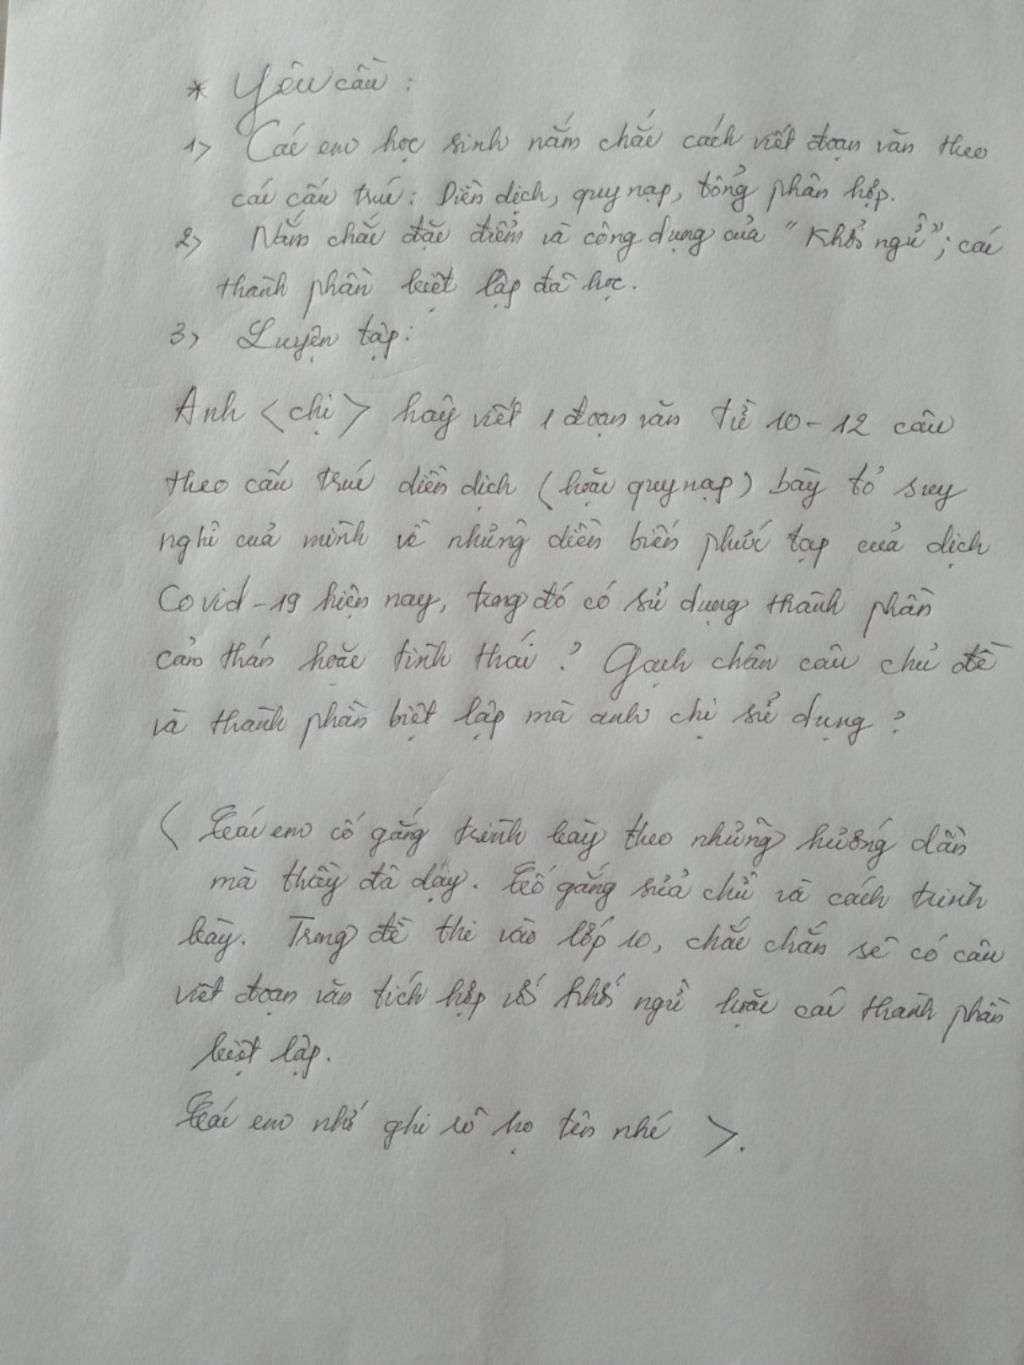 * Yêu cầu :
1> Các em học sinh nắm chắc cách viết đoạn văn theo
các cấu trúc: Diễn dịch, quy nạp, tổng phân hợp.
2> Nắm chắc đặc điểm và công dụng của "Khởi ngữ"; các
thành phần biệt lập đã học.
3> Luyện tập:
Anh <chị> hãy viết 1 đoạn văn từ 10-12 câu
theo cấu trúc diễn dịch (hoặc quy nạp) bày tỏ suy
nghĩ của mình về những diễn biến phức tạp của dịch
Covid-19 hiện nay, trong đó có sử dụng thành phần
cảm thán hoặc tình thái ? Gạch chân câu chủ đề
và thành phần biệt lập mà anh chị sử dụng ?
< Các em cố gắng trình bày theo những hướng dẫn
mà thầy đã dạy. Cố gắng sửa chữ và cách trình
bày. Trong đề thi vào lớp 10, chắc chắn sẽ có câu
viết đoạn văn tích hợp với khởi ngữ hoặc các thành phần
biệt lập.
Các em nhớ ghi rõ họ tên nhé >.